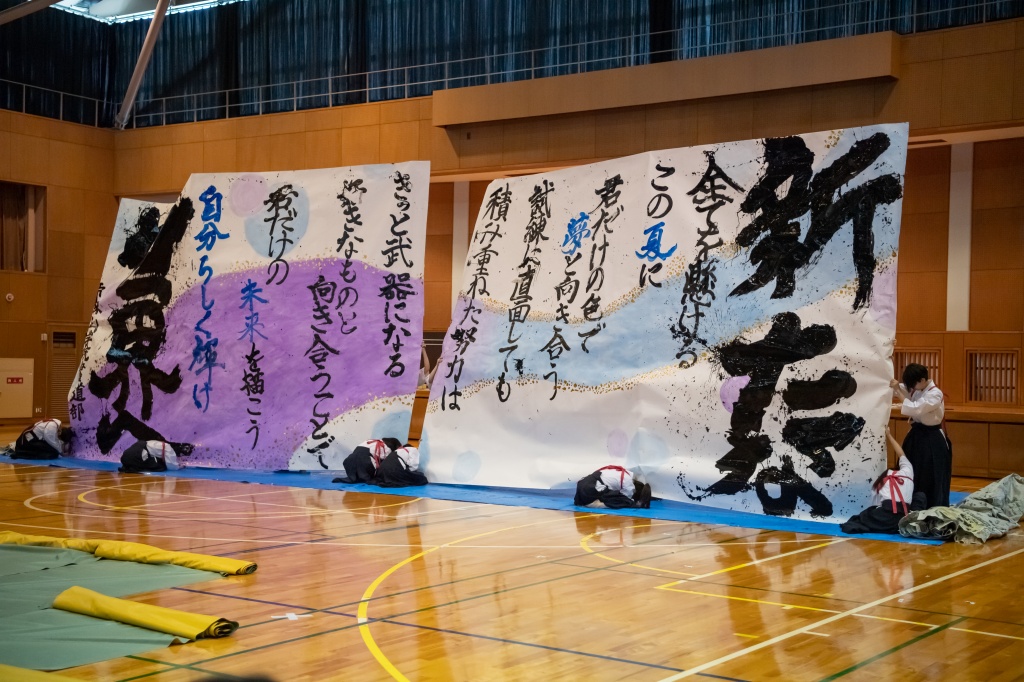 新たな
全てを懸ける
この夏に
君だけの色で
夢と向き合う
試練に直面しても
積み重ねた努力は
きっと武器になる
好きなものと
向き合うことで
君だけの
未来を描こう
自分らしく輝け
世界へ
道部